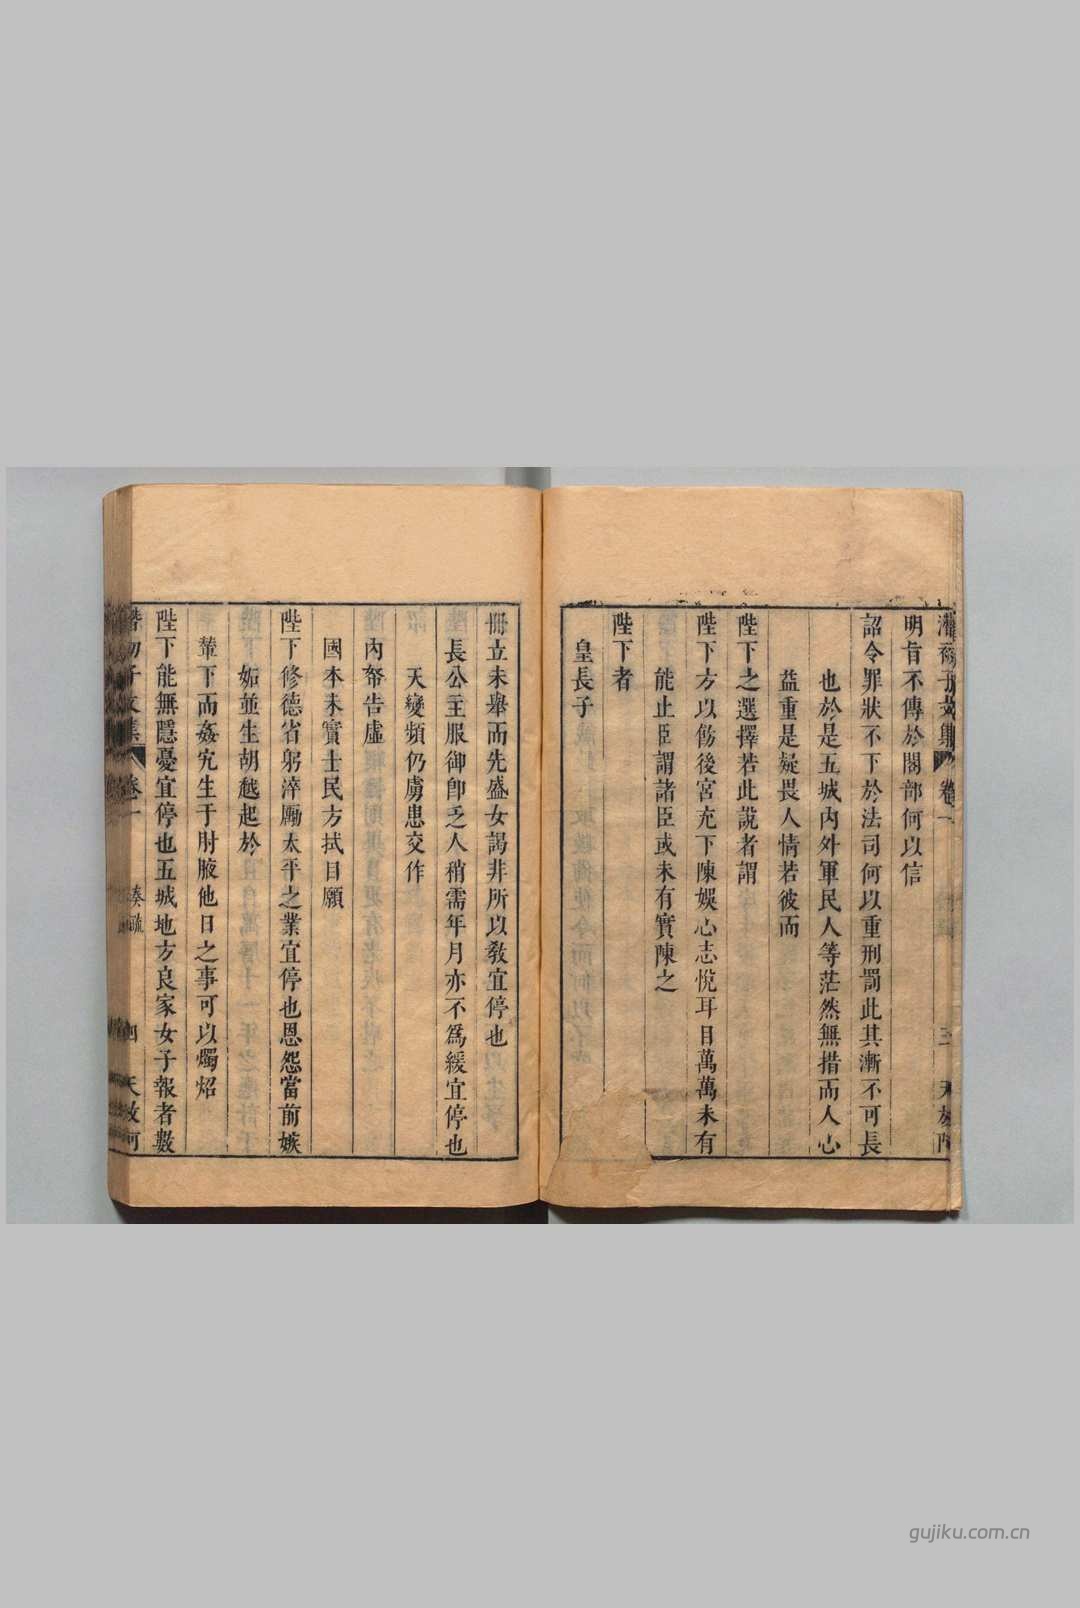 明旨不傳於閣部何以信
詔令罪狀不下於法司何以重刑罰此其漸不可長
也於是五城內外軍民人等茫然無措而人心
益重是疑畏人情若彼而
陛下之選擇若此說者謂
陛下方以飭後宮充下陳娛心志悅耳目萬萬未有
能止臣謂諸臣或未有實陳之
陛下者
皇長子
冊立未舉而先盛女謁非所以教宜停也
長公主服御卽乏人稍需年月亦不為緩宜停也
天變頻仍虜患交作
內帑告虛
國本未實士民方拭目願
陛下修德省躬淬勵太平之業宜停也恩怨當前嫉
妬並生胡越起於
輦下而姦宄生于肘腋他日之事可以燭炤
陛下能無隱憂宜停也五城地方良家女子報者數
卷一
奏疏
四
gujiku.com.cn